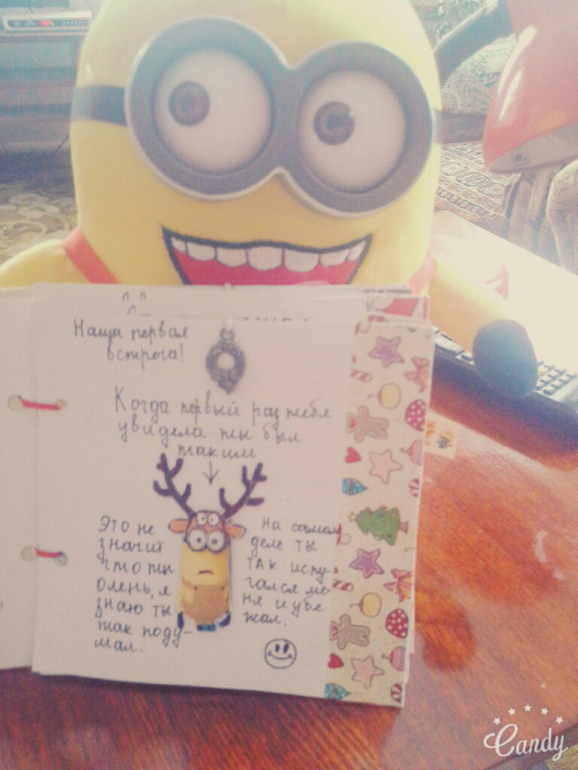 Наша первая
встреча!
Когда первый раз тебя
увидела ты был
таким
Это не
значит
что ты
олень, я
знаю ты
так поду-
мал.
На самом
деле ты
так испу-
гался ме-
ня и убе
жал.
Candy